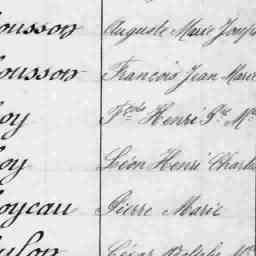 ousson Auguste Marie Josep
ousson François Jean Marie
oy Henri
oy Léon Henri Charle
oycau Pierre Marie
ulon César